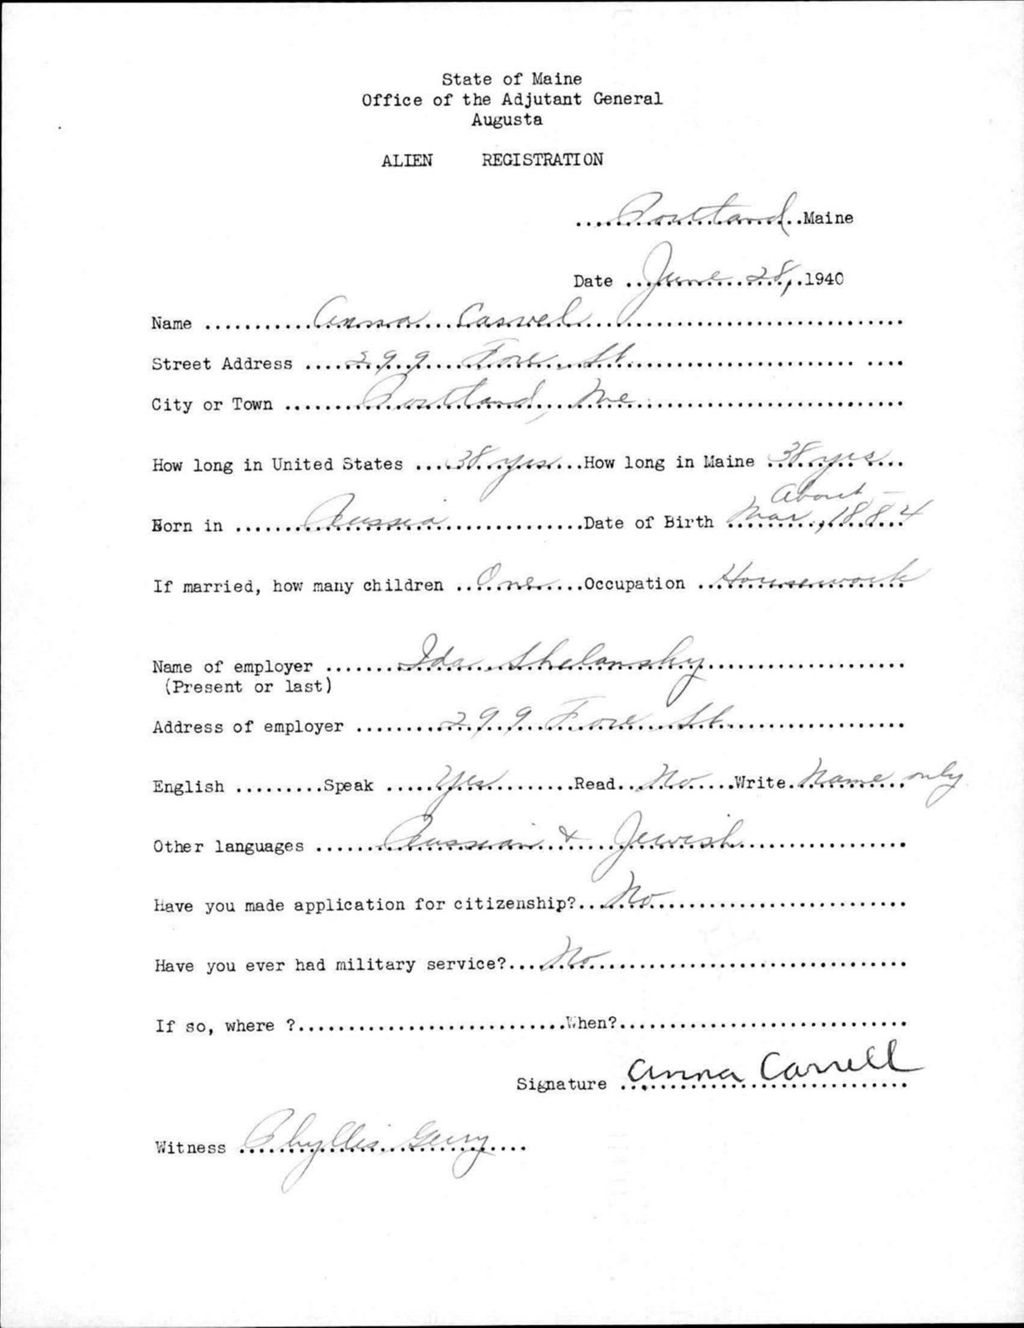 State of Maine
Office of the Adjutant General
Augusta
ALIEN REGISTRATION
Portland Maine
Date June 28, 1940
Name Anna Caswel
Street Address 299 Fore St.
City or Town Portland, Me.
How long in United States 38 yrs How long in Maine 38 yrs
About
Born in Russia Date of Birth Mar, 1884
If married, how many children One Occupation Housework
Name of employer Ida Shelansky
(Present or last)
Address of employer 299 Fore St.
English Speak Yes Read No Write Name only
Other languages Russian & Jewish
Have you made application for citizenship? No
Have you ever had military service? No
If so, where ? When?
Signature Anna
Witness Phyllis Geiry